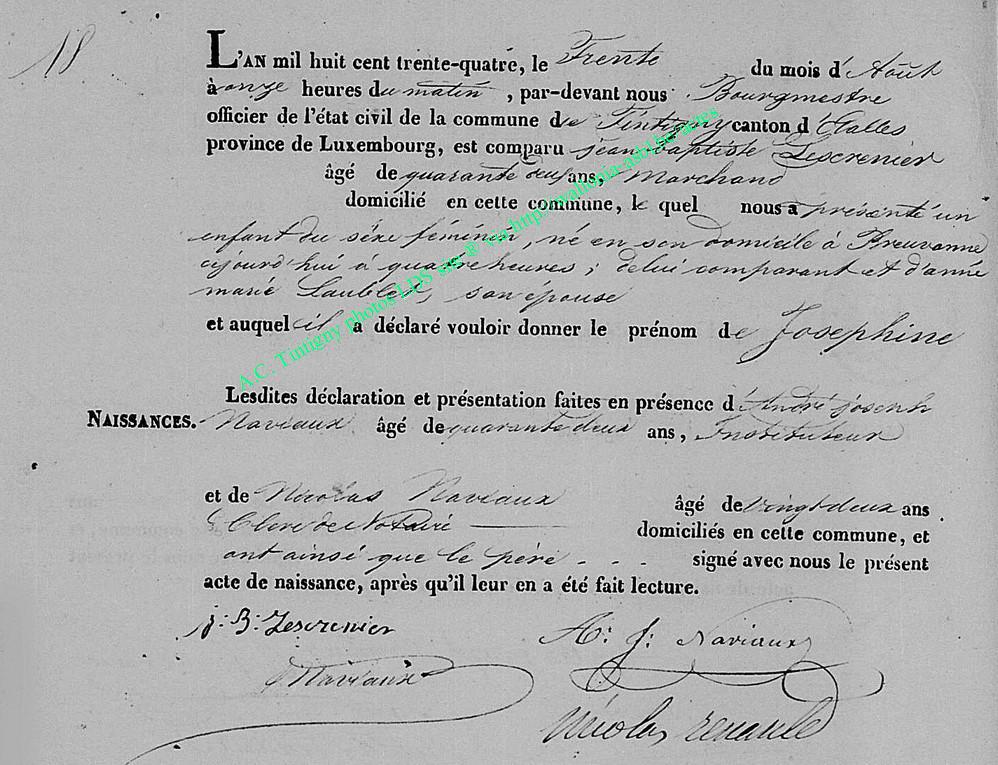 18
L'AN mil huit cent trente-quatre, le Trente du mois d'Août
à onze heures du matin, par-devant nous Bourgmestre
officier de l'état civil de la commune de Tintigny canton d'Etalles
province de Luxembourg, est comparu Jean Baptiste Lescrenier
âgé de quarante deux ans, Marchand
domicilié en cette commune, le quel nous a présenté un
enfant du séxe féminin, né en son domicile à Breuvanne
aujourd'hui à quatre heures; de lui comparant et d'anne
marie Laublet, son épouse
et auquel il a déclaré vouloir donner le prénom de Josephine
Lesdites déclaration et présentation faites en présence d'André joseph
NAISSANCES. Naviaux âgé de quarante deux ans, Instituteur
et de Nicolas Naviaux âgé de vingt deux ans
Clerc de Notaire domiciliés en cette commune, et
ont ainsi que le pére - - - signé avec nous le présent
acte de naissance, après qu'il leur en a été fait lecture.
j: B: Lescrenier A: J: Naviaux
Naviaux
nicolas renauld
A.C. Tintigny photos LDS site ® via http://wallonia-asbl.be/actes